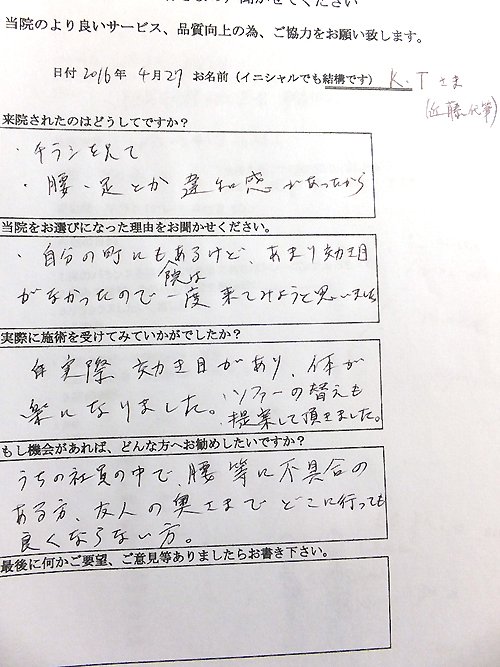 聞かせてください
当院のより良いサービス、品質向上の為、ご協力をお願い致します。
日付 2016年 4月27 お名前（イニシャルでも結構です） K.T さま
(近藤代筆)
来院されたのはどうしてですか？
・チラシを見て
・腰・足とか違和感があったから
当院をお選びになった理由をお聞かせください。
・自分の町にもあるけど、あまり効き目
院は
がなかったので一度来てみようと思いました
実際に施術を受けてみていかがでしたか？
実際効き目があり、体が
楽になりました。ソファーの替えも
提案して頂きました。
もし機会があれば、どんな方へお勧めしたいですか？
うちの社員の中で、腰等に不具合の
ある方、友人の奥さまで どこに行っても
良くならない方。
最後に何かご要望、ご意見等ありましたらお書き下さい。